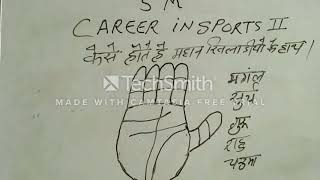 SM
CAREER IN SPORTS II
कैसे होते है महान खिलाडीयो के हाथ।
TechSmith
MADE WITH CAMTASIA FREE TRIAL
मंगल
सुर्य
शुक्र
राहु
चन्द्रमा